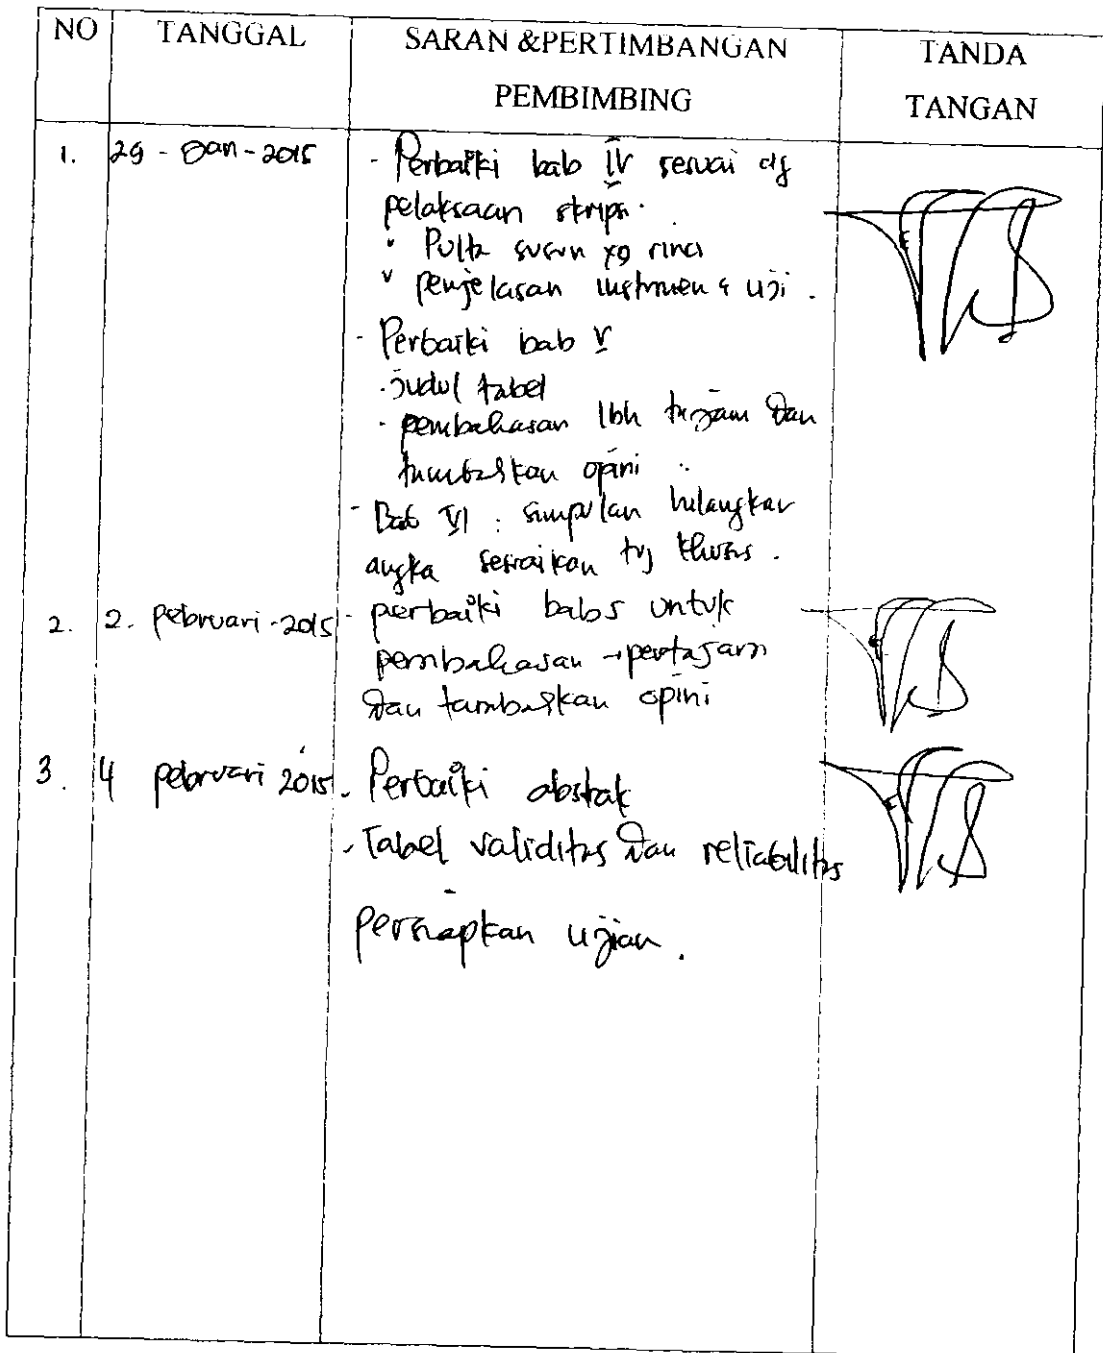 NO TANGGAL SARAN &PERTIMBANGAN TANDA
PEMBIMBING TANGAN
1. 29 - Jan - 2015 - Perbaiki bab IV sesuai dg
pelaksaan skripsi.
susun yg rinci
penjelasan instrumen & uji.
- Perbaiki bab V
- judul tabel
- pembahasan lbh tajam dan
tambahkan opini
- Bab VI : simpulan hilangkan
angka sesuaikan tuj khusus.
2. 2. pebruari - 2015 - perbaiki bab 5 untuk
pembahasan → pertajam
dan tambahkan opini
3. 4 pebruari 2015 - Perbaiki abstrak
- Tabel validitas dan reliabilitas
persiapkan ujian.